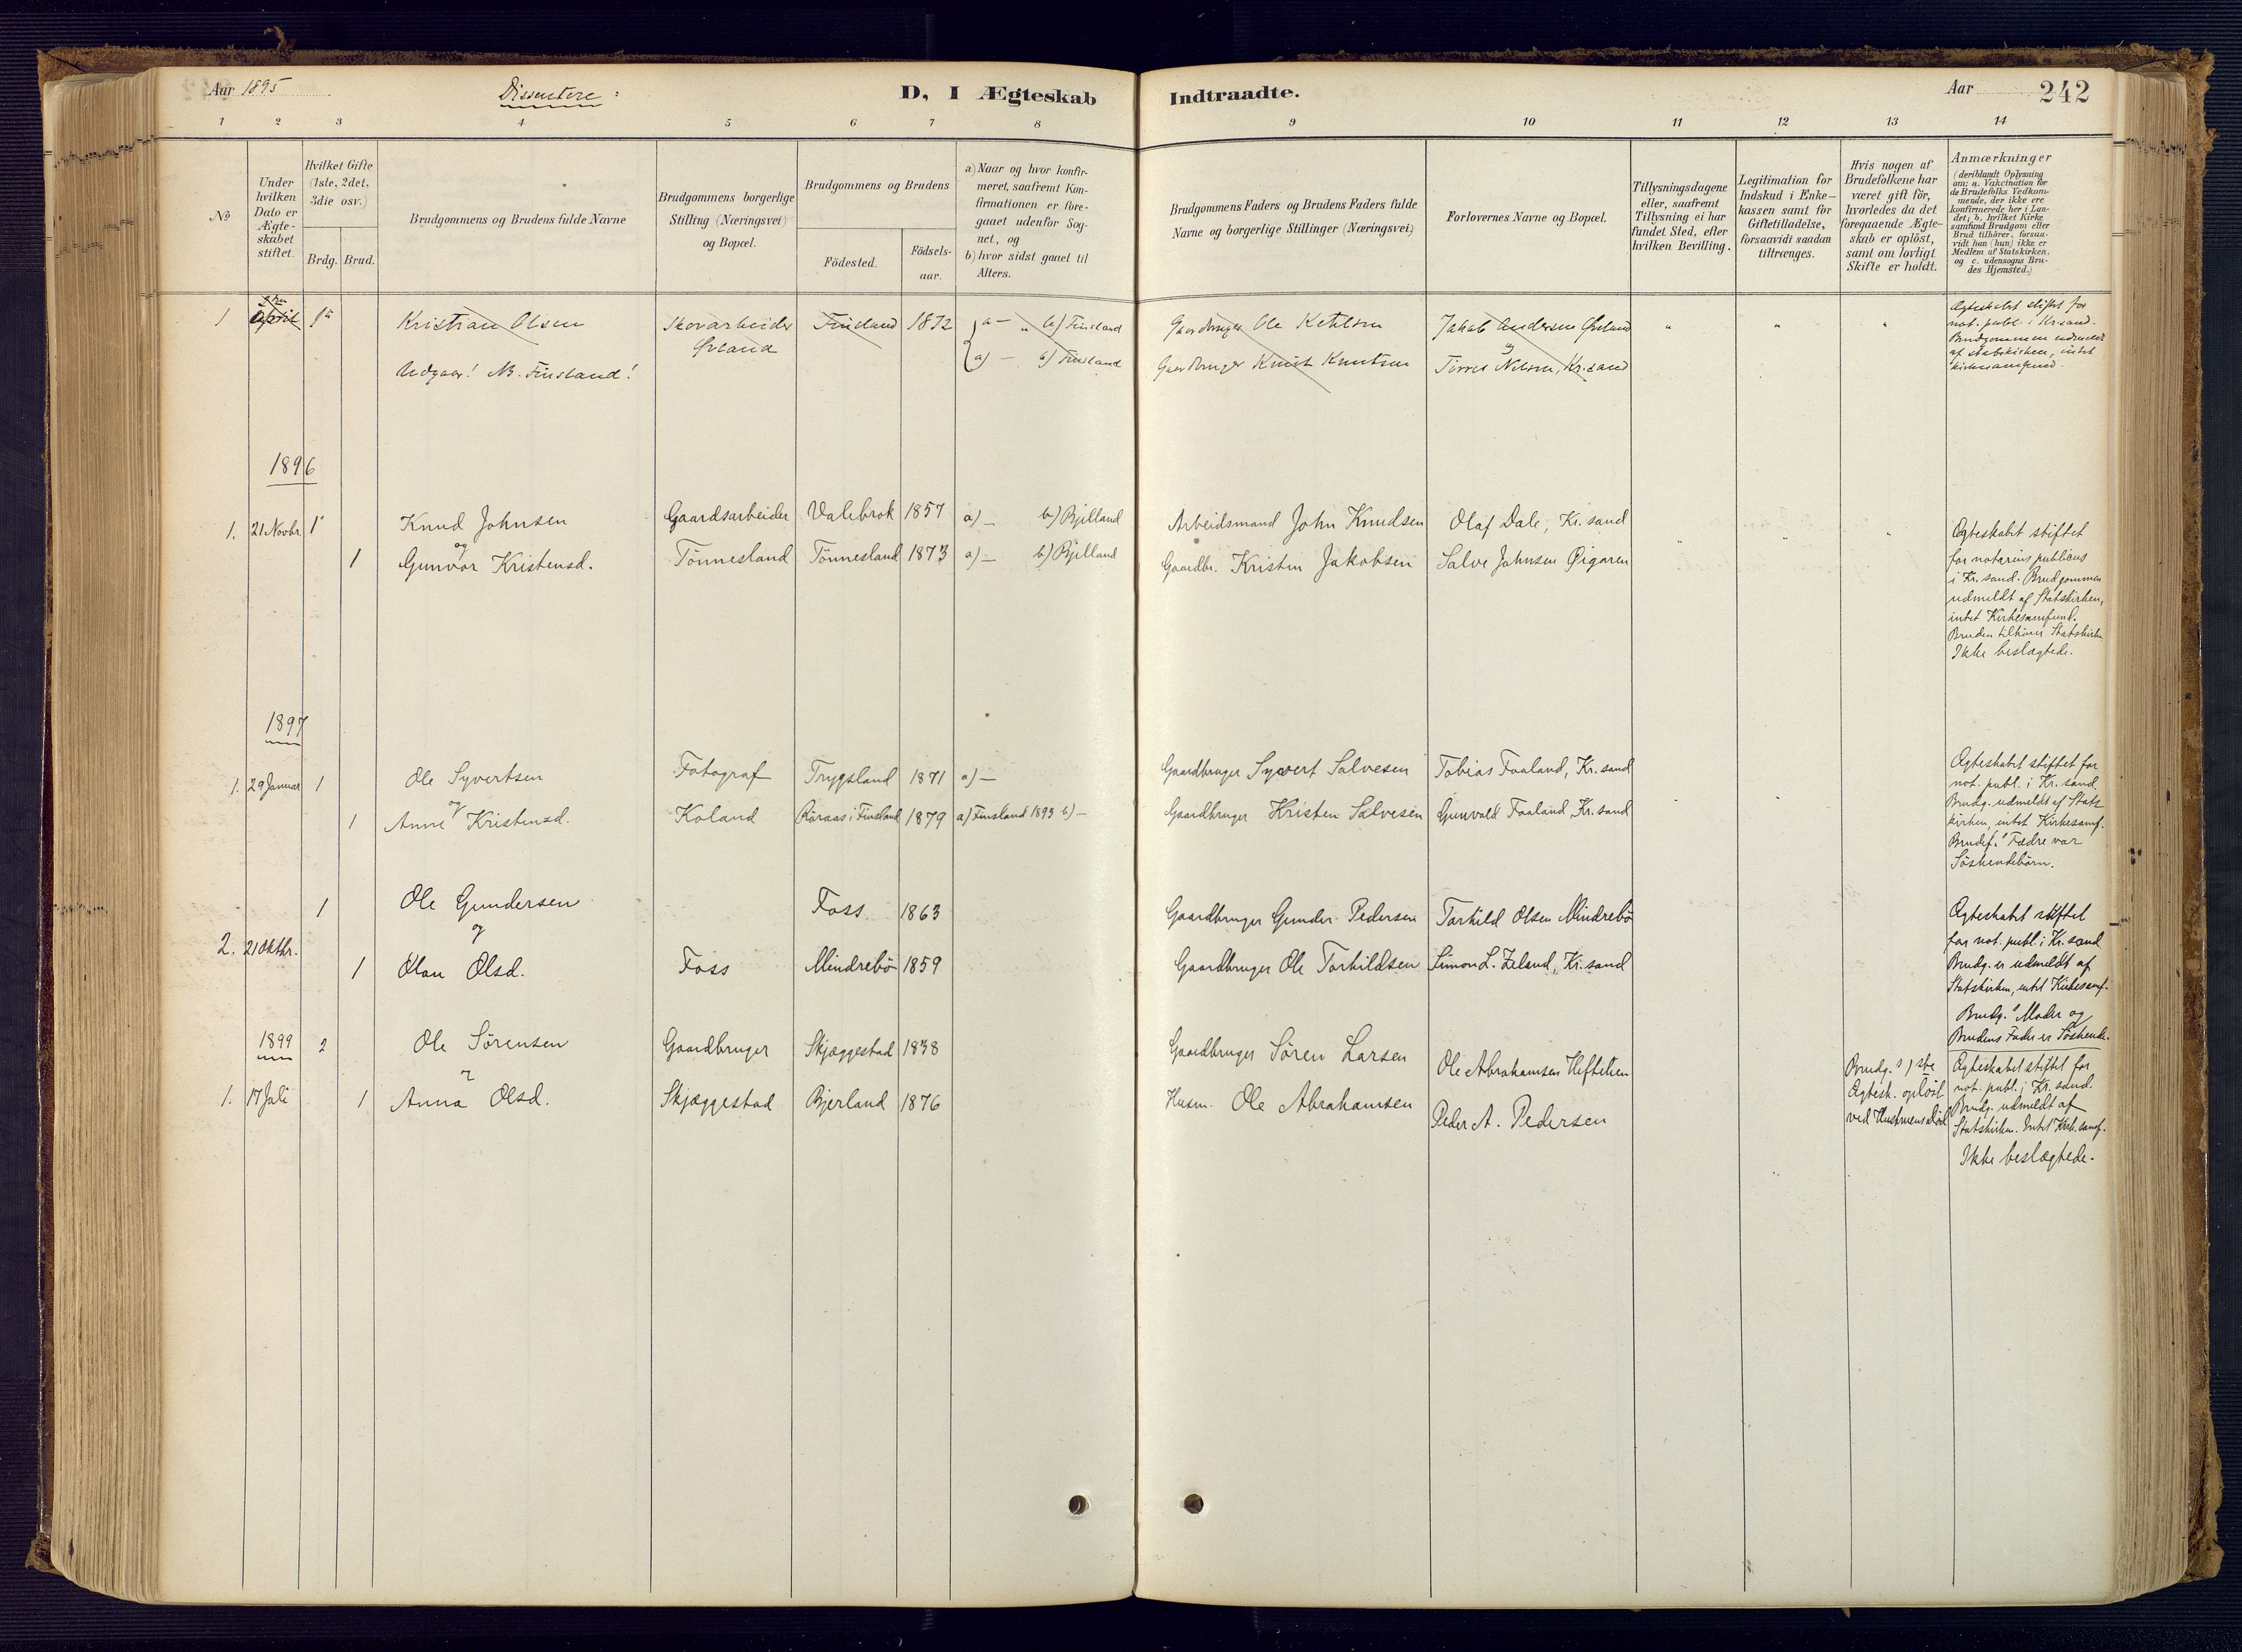 Aar 1895
Dissentere:
D, I Ægteskab
Indtraadte.
Aar
242
1 2 3 4 5 6 7 8
9 10 11 12 13 14
No
Under hvilken Dato er Ægte-skabet stiftet.
Hvilket Gifte (1ste, 2det, 3die osv.)
Brdg. Brud.
Brudgommens og Brudens fulde Navne
Brudgommens borgerlige
Stilling (Næringsvei)
og Bopæl.
Brudgommens og Brudens
Födested.
Födsels-
aar.
a) Naar og hvor konfir-
meret, saafremt Kon-
firmationen er fore-
gaaet udenfor Sog-
net, og
b) hvor sidst gaaet til
Alters.
Brudgommens Faders og Brudens Faders fulde
Navne og borgerlige Stillinger (Næringsvei)
Forlovernes Navne og Bopæl.
Tillysningsdagene
eller, saafremt
Tillysning ei har
fundet Sted, efter
hvilken Bevilling.
Legitimation for
Indskud i Enke-
kassen samt for
Giftetilladelse,
forsaavidt saadan
tiltrænges.
Hvis nogen af
Brudefolkene har
været gift för,
hvorledes da det
foregaaende Ægte-
skab er oplöst,
samt om lovligt
Skifte er holdt.
Anmærkninger
(deriblandt Oplysning
om: a. Vakcination for
de Brudefolks Vedkom-
mende, der ikke ere
konfirmerede her i Lan-
det; b. hvilket Kirke
samfund Brudgom eller
Brud tilhörer, forsaa-
vidt han (hun) ikke er
Medlem af Statskirken,
og c. udensogns Bru-
des Hjemsted.)
1 April Kristian Olsen Skovarbeider Finsland 1872 a) - " b) Finsland Gaardbruger Ole Ketelsen Jakob Andersen Øvland " " "
Øvland a) - b) Finsland Gaardbruger Knut Knutsen Torres Nilsen, Kr.sand
Udgaar! NB. Finsland!
Ægteskabet stiftet for
not. publ. i Kr.sand.
Brudgommen udmeldt
af statskirken, intet
kirkesamfund.
1896
1. 21 Novbr. 1 Knud Johnsen Gaardsarbeider Valebrok 1857 a) - b) Bjelland Arbeidsmand John Knudsen Olaf Dale, Kr.sand
og
1 Gunvor Kristensd. Tönnesland Tönnesland 1873 a) - b) Bjelland Gaardbr. Kristen Jakobsen Salve Johnsen Øigaren
Ægteskabet stiftet
for notarius publicus
i Kr.sand. Brudgommen
udmeldt af Statskirken,
intet Kirkesamfund.
Bruden tilhörer Statskirken
Ikke beslægtede.
1897
1. 29 Januar 1 Ole Syvertsen Fotograf Trygsland 1871 a) - Gaardbruger Syvert Salvesen Tobias Faaland, Kr.sand
og
1 Anne Kristensd. Koland Röraas i Finsland 1879 a) Finsland 1893 b) - Gaardbruger Kristen Salvesen Gunvald Faaland, Kr.sand
Ægteskabet stiftet for
not. publ. i Kr.sand.
Brudg. udmeldt af Stats
kirken, intet Kirkesamf.
Brudef.s Fædre var
Söskendebörn.
1 Ole Gundersen Foss 1863 Gaardbruger Gunder Pedersen Tarkild Olsen Mindrebö
og
2. 21 Oktbr. 1 Olau Olsd. Foss Mindrebö 1859 Gaardbruger Ole Tarkildsen Simon L. Zelsud, Kr.sand
Ægteskabet stiftet
for not. publ. i Kr.sand
Brudg. er udmeldt af
Statskirken, intet Kirkesamf.
Brudg.s Moder og
Brudens Fader er Söskende.
1899
2 Ole Sörensen Gaardbruger Skjæggestad 1838 Gaardbruger Sören Larsen Ole Abrahamsen Hefteken
1. 17 Juli 1 Anna Olsd. Skjæggestad Bjerland 1876 Husm. Ole Abrahamsen Peder A. Pedersen
Brudg.s 1ste
Ægtesk. oplöst
ved Hustruens död
Ægteskabet stiftet for
not. publ. i Kr.sand.
Brudg. udmeldt af
Statskirken. Intet Kirk.samf.
Ikke beslægtede.